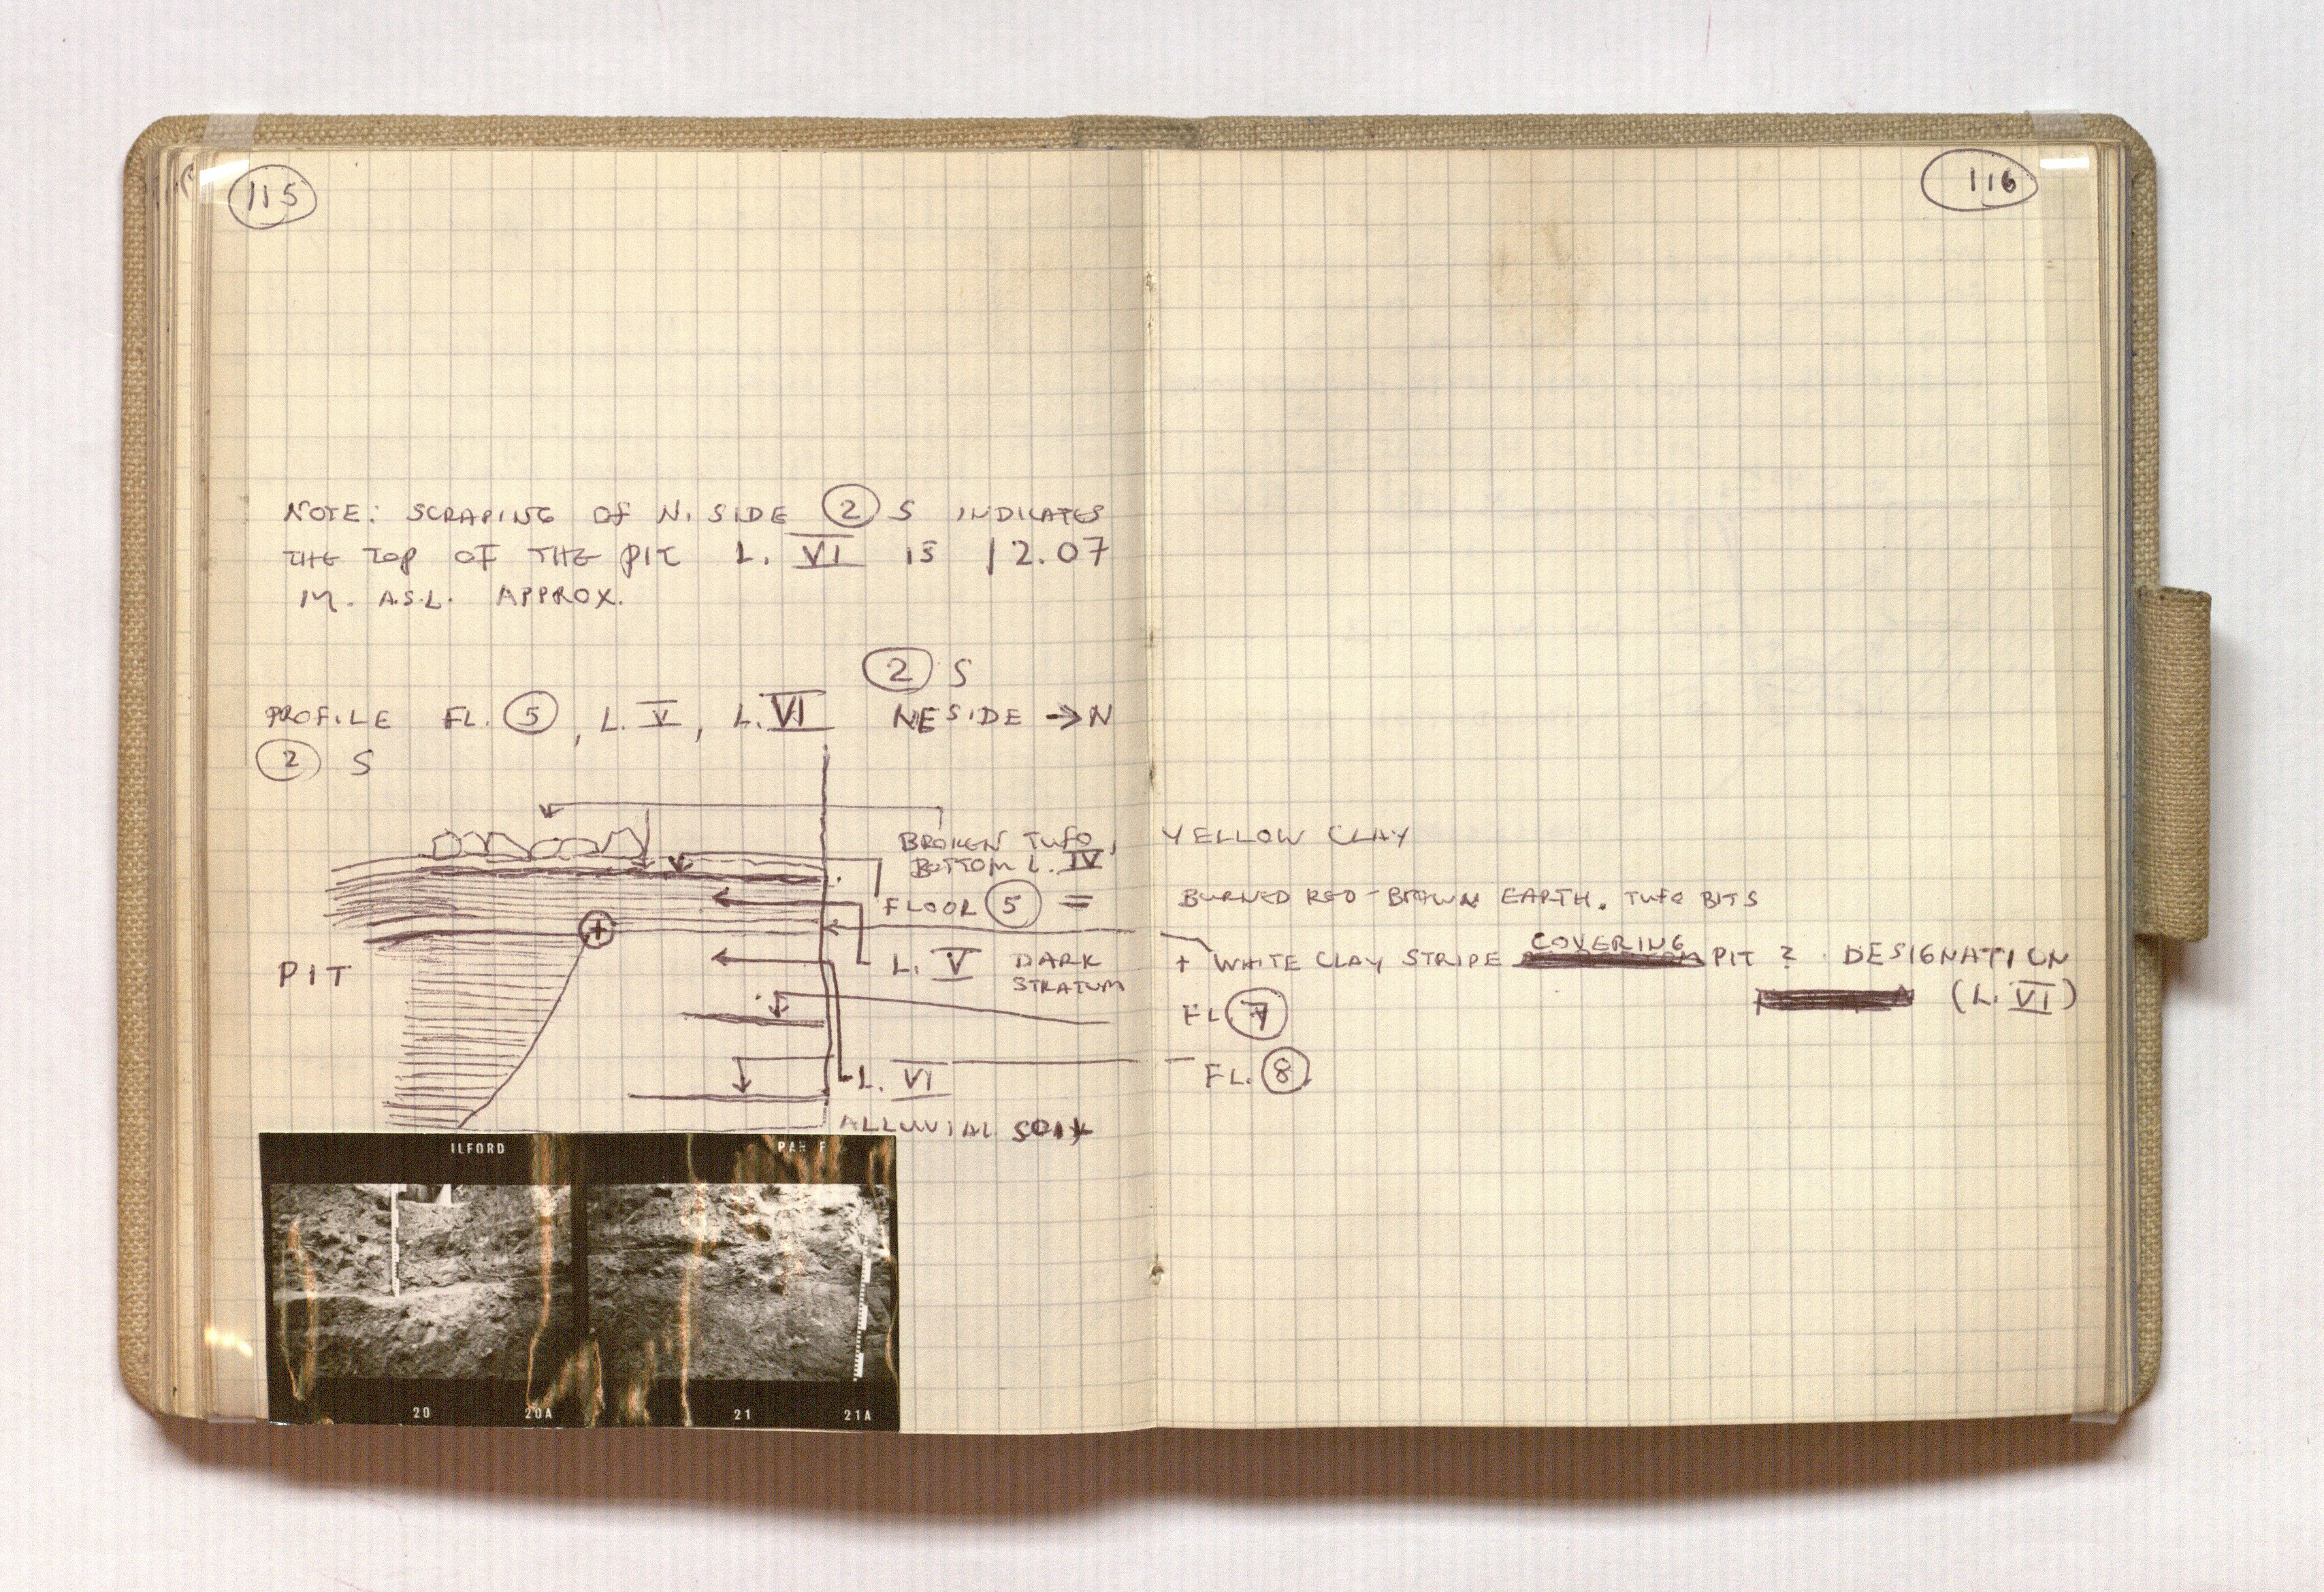 115
NOTE: SCRAPING OF N. SIDE 2 S INDICATES
THE TOP OF THE PIT L. VI IS 12.07
M. A.S.L. APPROX.
2 S
PROFILE FL. 5, L. V, L. VI NE SIDE → N
2 S
BROKEN TUFO,
BOTTOM L. IV
FLOOR 5 =
L. V DARK
STRATUM
PIT
+
L. VI
ALLUVIAL SOIL
ILFORD PAN F
20 20A 21 21A
116
YELLOW CLAY
BURNED RED-BROWN EARTH. TUFO BITS
COVERING
+ WHITE CLAY STRIPE PIT ? DESIGNATION
(L. VI)
FL. 7
FL. 8